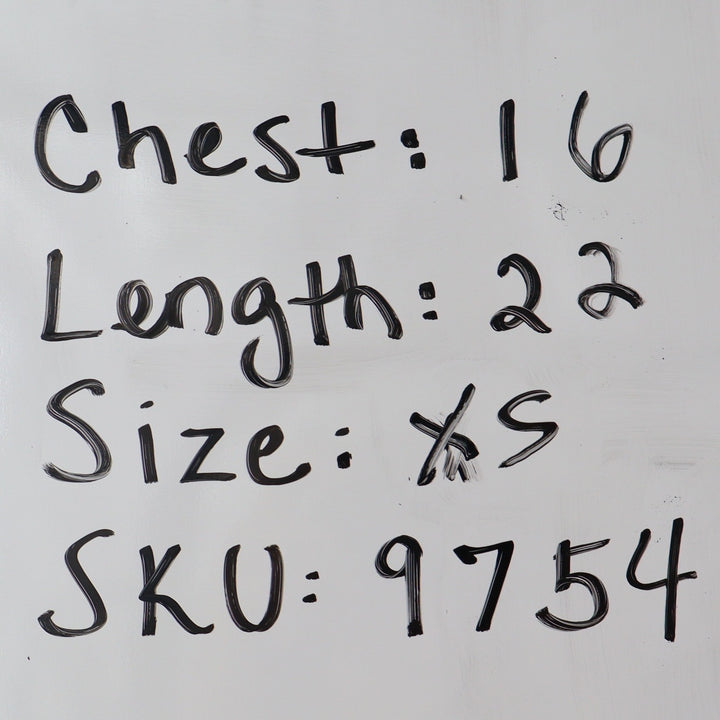 Chest: 16
Length: 22
Size: XS
SKU: 9754